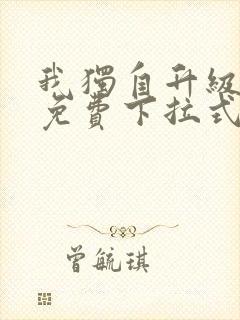 我獨自升級
免費下拉式
曾毓琪